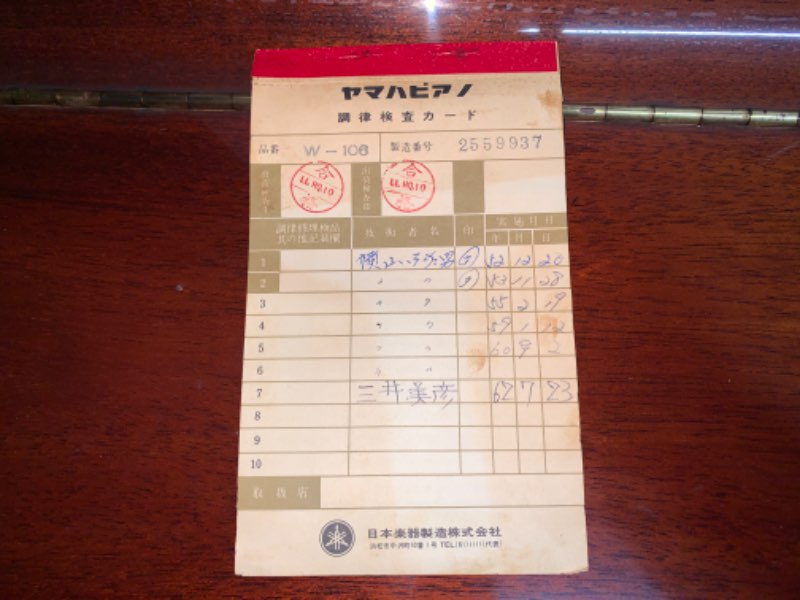 ヤマハピアノ
調律検査カード
品番 W-106 製造番号 2559937
合 合
調律修理検品 技術者名 印 実施月日
其の他記載欄 年 月 日
1 52 12 20
2 〃 〃 53 11 28
3 〃 〃 55 2 19
4 〃 〃 59 1 12
5 〃 〃 60 9 2
6 〃 〃
7 三井美彦 62 7 23
8
9
10
取扱店
日本楽器製造株式会社
浜松市中沢町10番1号